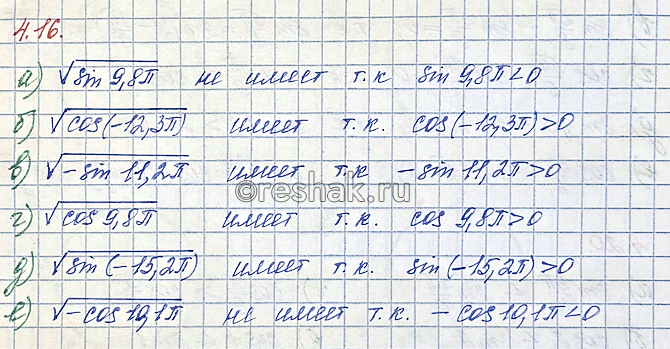 4.16.
а) √sin 9,8π не имеет т.к sin 9,8π<0
б) √cos(-12,3π) имеет т.к. cos(-12,3π)>0
в) √-sin 11,2π имеет т.к -sin 11,2π>0
©reshak.ru
г) √cos 9,8π имеет т.к. cos 9,8π>0
д) √sin(-15,2π) имеет т.к. sin(-15,2π)>0
е) √-cos10,1π не имеет т.к. -cos10,1π<0